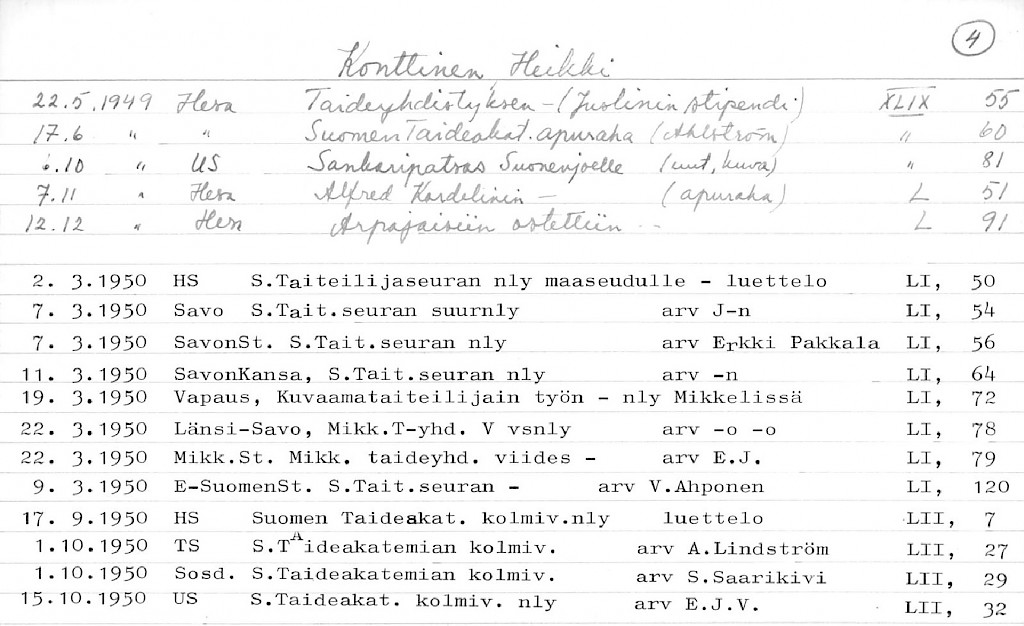 4
Konttinen, Heikki
22.5.1949 Hesa Taideyhdistyksen – (Justinin stipendi) XLIX 55
17.6 " " Suomen Taideakat. apuraha (Ahlström) " 60
6.10 " US Sankaripatsas Suonenjoelle (uut, kuva) " 81
7.11 " Hesa Alfred Kordelinin – (apuraha) L 51
12.12 " Hesa Arpajaisiin ostettiin -- L 91
2. 3.1950 HS S.Taiteilijaseuran nly maaseudulle - luettelo LI, 50
7. 3.1950 Savo S.Tait.seuran suurnly arv J-n LI, 54
7. 3.1950 SavonSt. S.Tait.seuran nly arv Erkki Pakkala LI, 56
11. 3.1950 SavonKansa, S.Tait.seuran nly arv -n LI, 64
19. 3.1950 Vapaus, Kuvaamataiteilijain työn - nly Mikkelissä LI, 72
22. 3.1950 Länsi-Savo, Mikk.T-yhd. V vsnly arv -o -o LI, 78
22. 3.1950 Mikk.St. Mikk. taideyhd. viides - arv E.J. LI, 79
9. 3.1950 E-SuomenSt. S.Tait.seuran - arv V.Ahponen LI, 120
17. 9.1950 HS Suomen Taideakat. kolmiv.nly luettelo LII, 7
1.10.1950 TS S.TAideakatemian kolmiv. arv A.Lindström LII, 27
1.10.1950 Sosd. S.Taideakatemian kolmiv. arv S.Saarikivi LII, 29
15.10.1950 US S.Taideakat. kolmiv. nly arv E.J.V. LII, 32